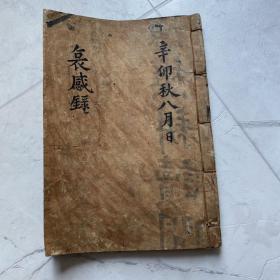 辛卯秋八月日
哀感錄